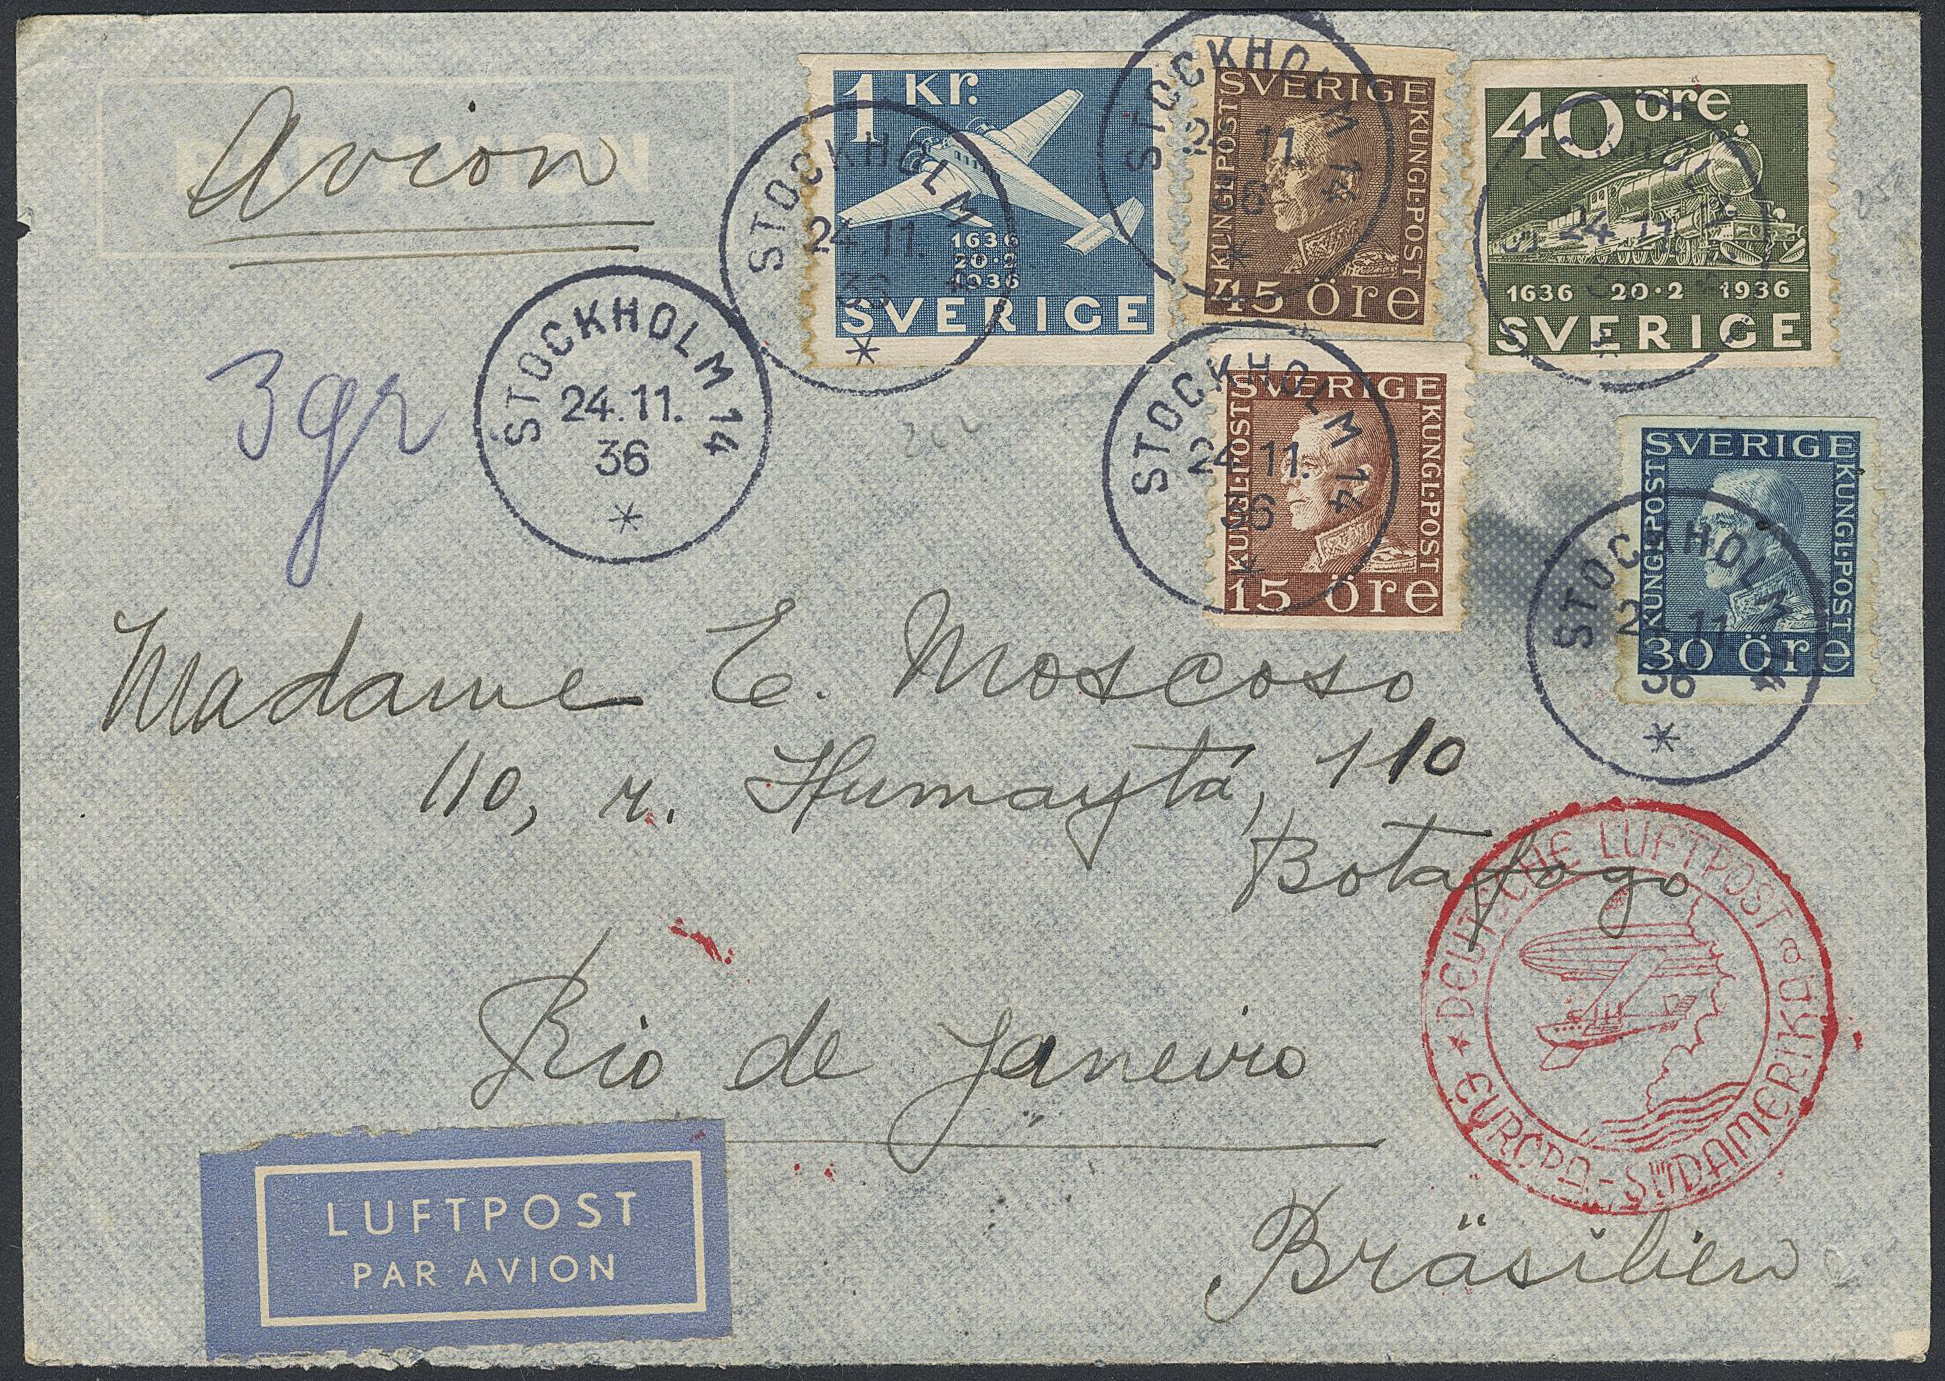 PAR AVION
Avion
1 Kr.
1636
20·2
1936
SVERIGE
STOCKHOLM 14
24.11.
36
SVERIGE
KUNGL·POST
KUNGL·POST
45 öre
STOCKHOLM 14
24.11.
36
40 öre
1636 20·2 1936
SVERIGE
STOCKHOLM 14
24.11.
36
STOCKHOLM 14
24.11.
36
3gr
SVERIGE
KUNGL·POST
KUNGL·POST
15 öre
STOCKHOLM 14
24.11.
36
SVERIGE
KUNGL·POST
KUNGL·POST
30 öre
STOCKHOLM 14
24.11.
36
Madame E. Moscoso
110, r. Humaytá, 110
Botafogo
Rio de Janeiro
Bräsilien
DEUTSCHE LUFTPOST a
EUROPA-SÜDAMERIKA
LUFTPOST
PAR AVION